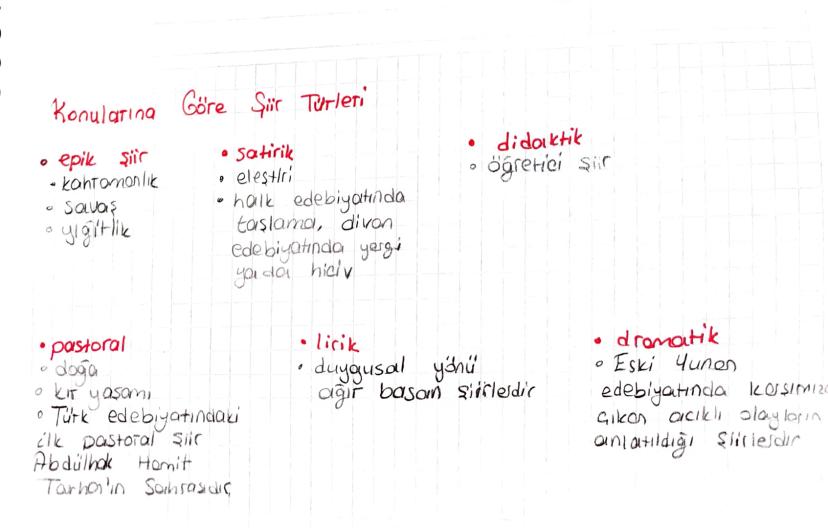 Konularına Göre Şiir Türleri
• epik şiir
• kahramanlık
• savaş
• yiğitlik
• satirik
• eleştiri
• halk edebiyatında
taşlama, divan
edebiyatında yergi
ya da hiciv
• didaktik
• öğretici şiir
• pastoral
• doğa
• kır yaşamı
• Türk edebiyatındaki
ilk pastoral şiir
Abdülhak Hamit
Tarhan'ın Sahrasıdır
• lirik
• duygusal yönü
ağır basan şiirlerdir
• dramatik
• Eski Yunan
edebiyatında karşımıza
çıkan acıklı olayların
anlatıldığı şiirlerdir